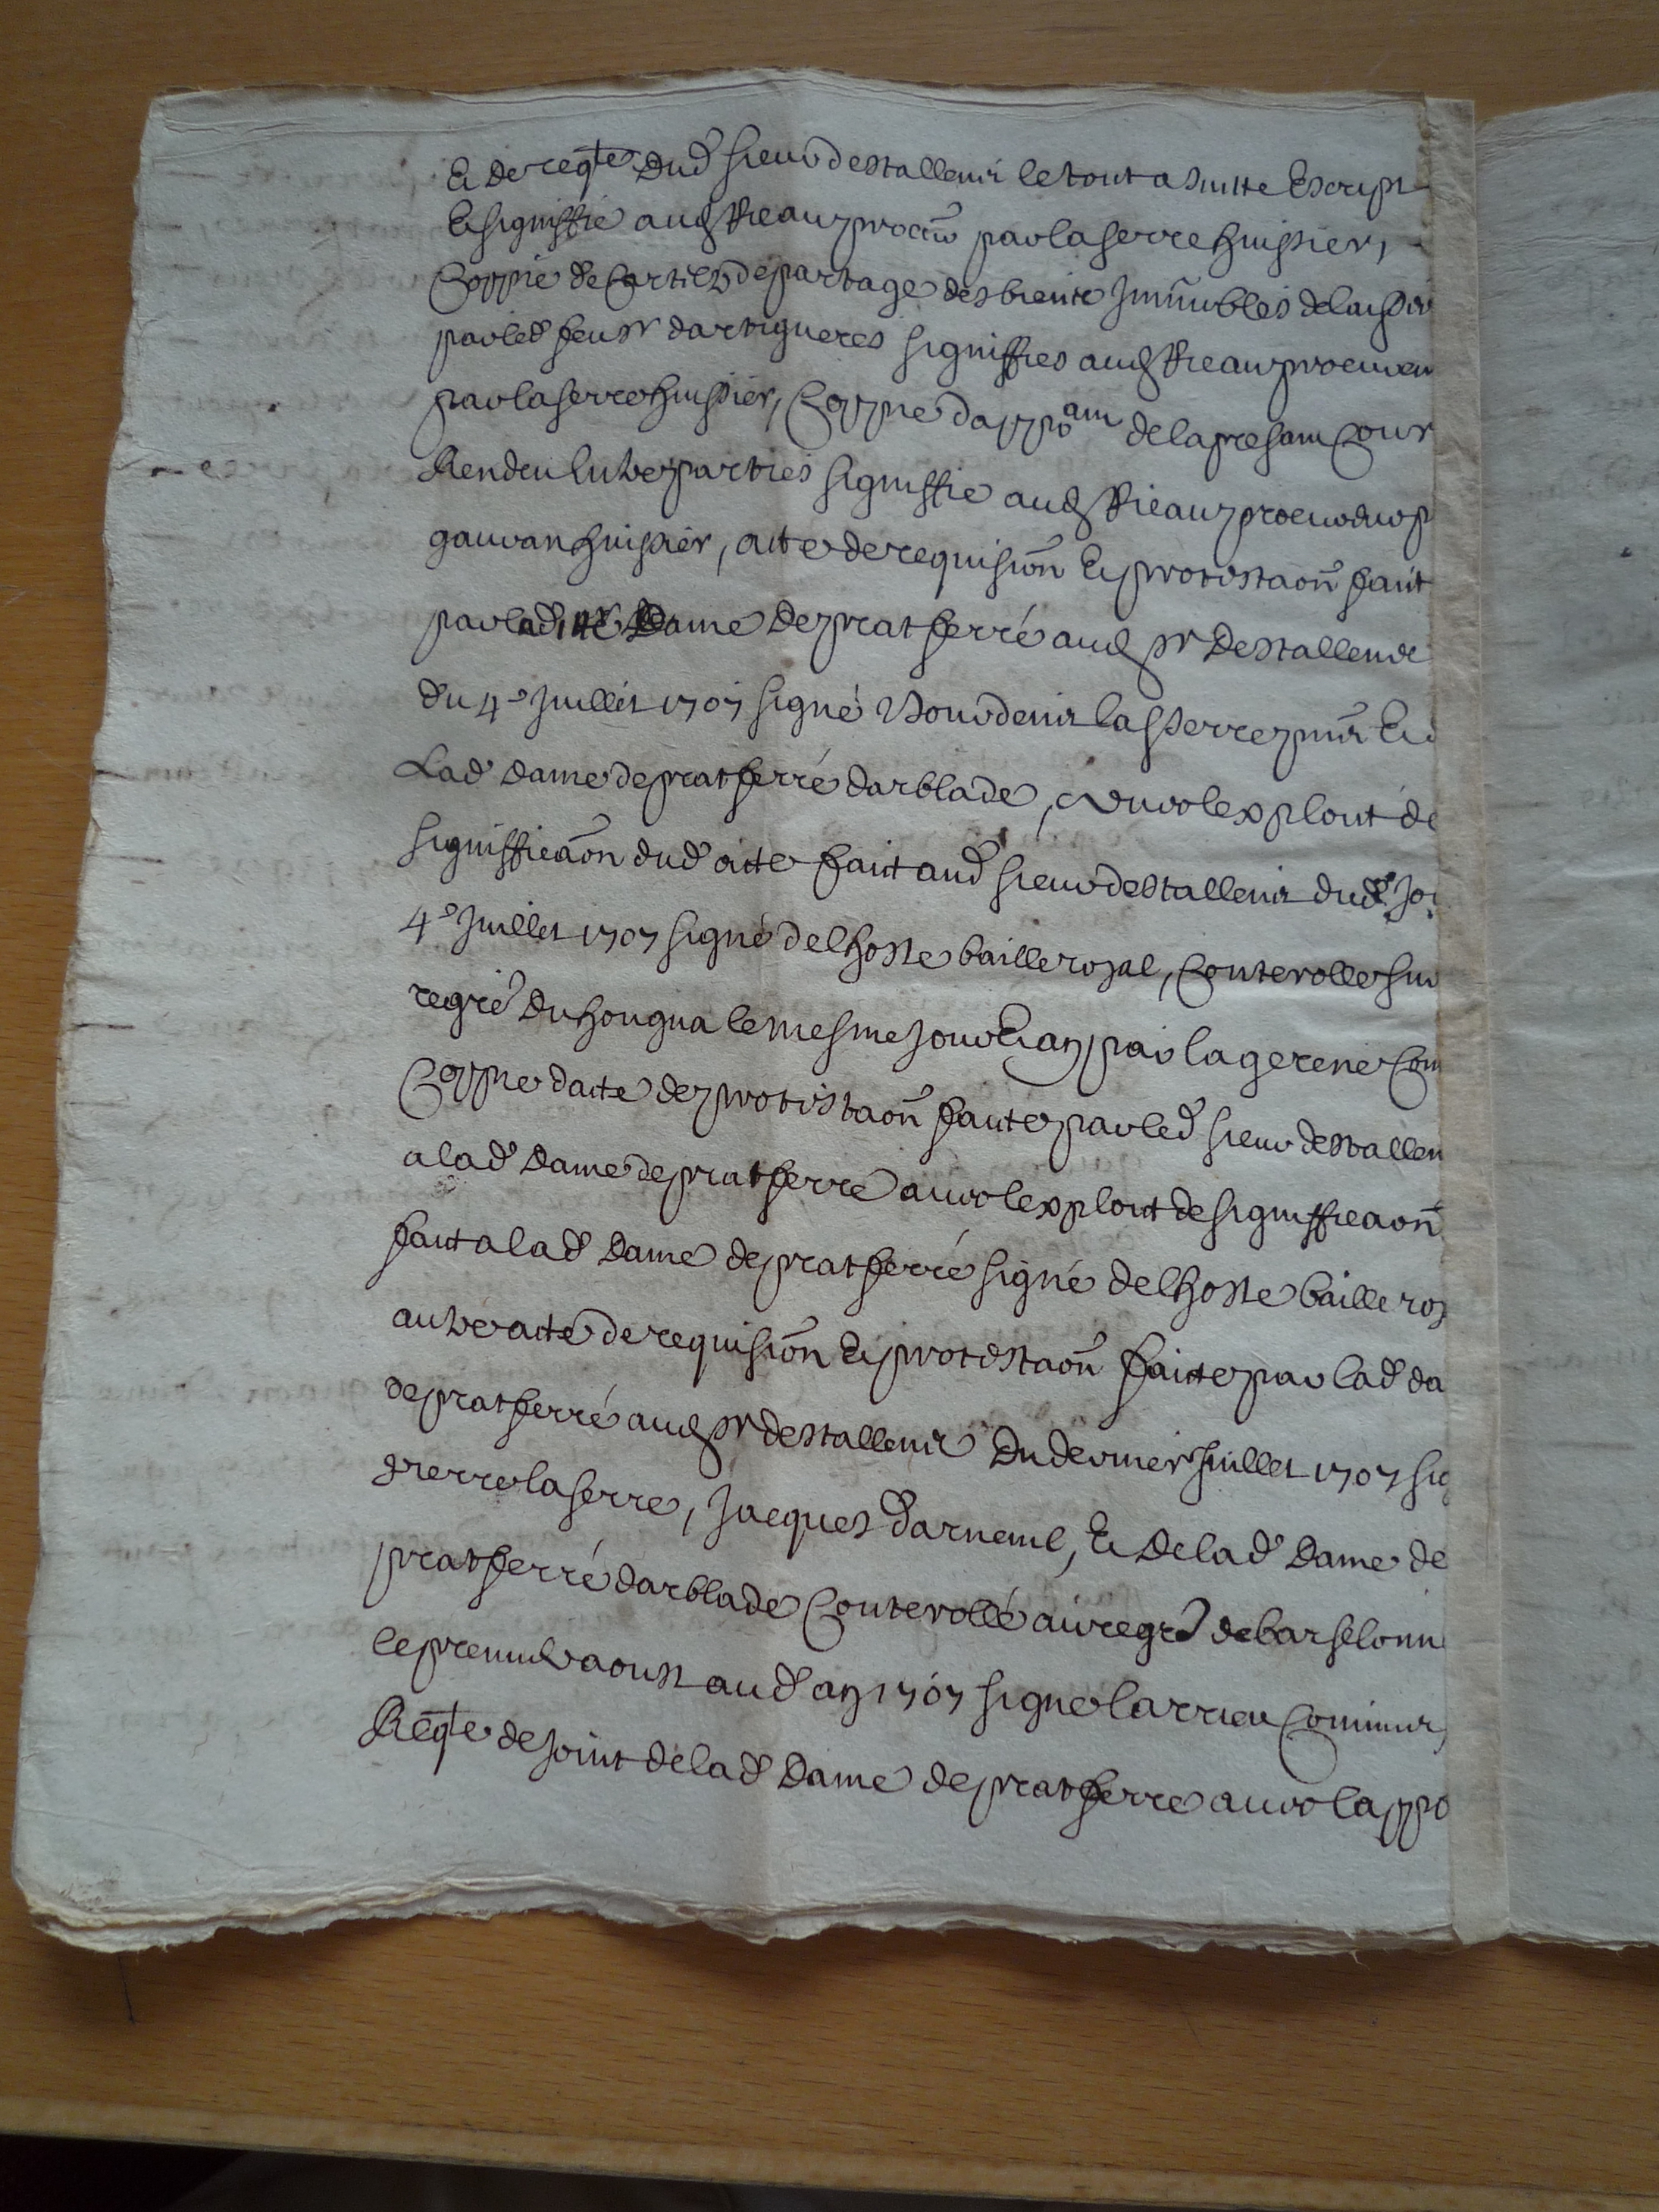 Et de reqte dud sieur destallens le tout a suitte Escript
Et signiffie aud Rieau procur par laserre huissier,
Coppie de Cartier de partage des biens immubles delaisses
par led feu sr dartigueres signiffies aud Rieau procureur
par laserre huissier, Coppie dappoant de la presant Cour
Rendeu entre parties signiffie aud Rieau procureur p
gauvan huissier, acte de requision Et protestaon fait
par lad Dame de pratferré aud sr Destallens
du 4e Juillet 1707 signé laserre Et
Lad Dame de pratferré darblade, avec lexploit de
signiffieaon dud acte fait aud sieur destallens dud Jo
4e Juillet 1707 signé delhoste baille royal, Conterolle sur
regre du hougua le mesme jour Et an par lagerene Com
Coppie dacte de protestaon faite par led sieur destallen
a lad Dame de pratferre avec lexploit de signiffieaon
fait a lad Dame de pratferré signé delhoste baille roy
autre acte de requision Et protestaon faitte par lad da
de pratferré aud sr destallens Du dernier Juillet 1707 sig
pierre laserre, Jacques darneuil, Et De lad Dame de
pratferré darblade Conterollé au regre de barselonn
le premier aoust aud an 1707 signe larrieu Commis,
Reqte de joint de lad Dame de pratferre avec lappo